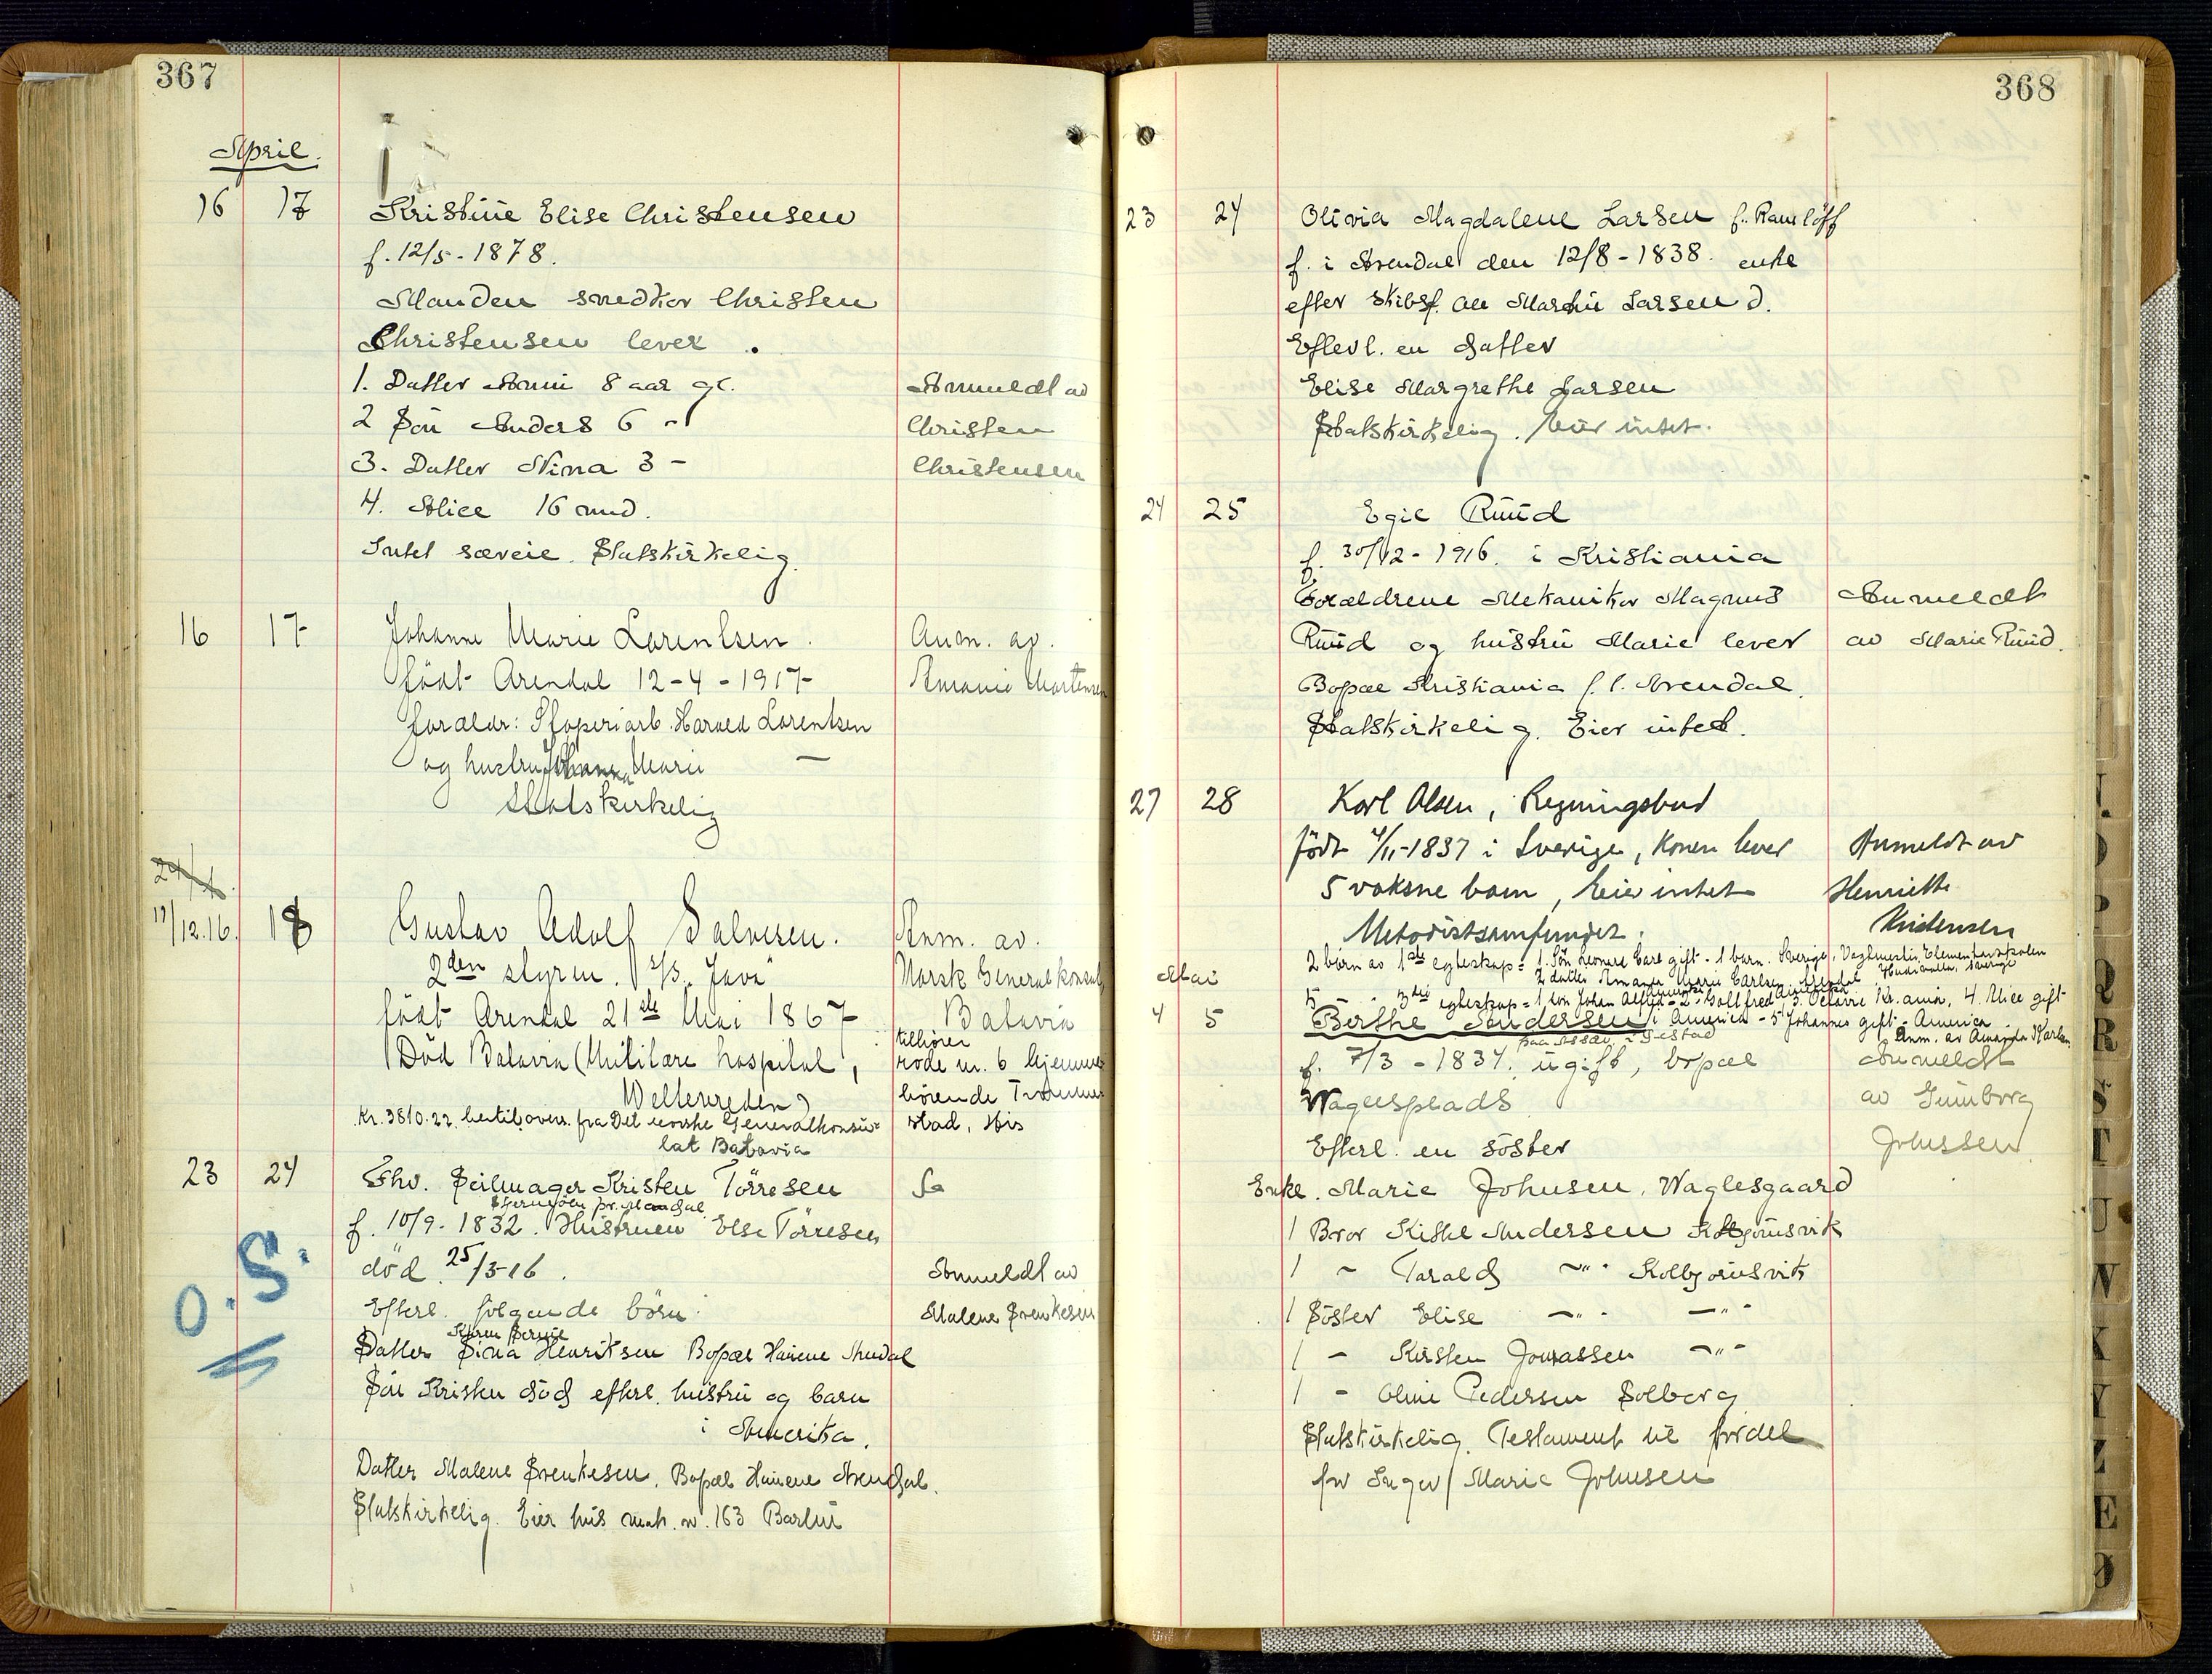 367
April.
16 17 Kristine Elise Christensen
f. 12/5 - 1878.
Manden snedker Christen
Christensen lever.
1. Datter Anni 8 aar gl. Anmeldt av
2 Sön Anders 6 - Christen
3. Datter Nina 3 - Christensen
4. Alice 16 mnd.
Intet særeie. Statskirkelig.
16 17 Johanne Marie Lorentsen. Anm. av.
född Arendal 12-4-1917 Amanie Mortensen
foraldr: Harald Lorentsen
og hustru Johanna Marie —
Statskirkelig
24/4.
19/12.16. 18 Gustav Adolf Salvesen. Anm. av.
2den styrm. S/S. Java Norsk Generalkonsul
född Arendal 21de Mai 1867 Batavia
Död Batavia (Militære hospital, tilhörer
rode nr. 6 hjemme-
Weltevreden) hörende Tromme-
Kr. 3810.22 hertil overs. fra Det norske Generalkonsu= stad, His
lat Batavia
23 24 Fhv. Seilmager Kristen Törresen Ja
pr. Mandal
f. 10/9 - 1832. Hustruen Else Törresen
död 25/3-16. Anmeldt av
Efterl. følgende börn: Malene Svenkesen
O.S.
Karen
Datter Sina Henriksen Bopæl Arendal
Sön Kristen død efterl. hustru og barn
i Amerika.
Datter Malene Svenkesen, Bopæl Arendal.
Statskirkelig. Eier hus mat. nr. 163 Barbu
368
23 24 Olivia Magdalene Larsen f. Ramlöff
f. i Arendal den 12/8 - 1838. enke
efter skibsf. Martin Larsen d.
Efterl. en datter
Elise Margrethe Larsen
Statskirkelig. Eier intet.
24 25 Egil Ruud
f. 30/12 - 1916. i Kristiania
Forældrene Mekaniker Magnus Anmeldt
Ruud og hustru Marie lever av Marie Ruud.
Bopæl Kristiania f. t. Arendal.
Statskirkelig. Eier intet.
27 28 Karl Olsen, Regningsbud
född 4/11-1837 i Sverige, Konen lever Anmeldt av
5 voksne barn, Eier intet Henriette
Metodistsamfundet. Knudensen
2 börn av 1ste egteskap = 1. Sön Leonard Carl gift - 1 barn. Sverige, Elementarskolen
Hudiksvalla, Sverige
2 datter Amanda Marie Carlsen Arendal
5 - - egteskap = 1 sön Johan Alfred - 2 Gottfred 3. Kr.ania, 4. Alice gift
Mai
4 5 Berthe Andersen i America - 5 Johannes gift - America
Anm. av Amanda Karlsen
f. 7/3 - 1834. ugift, bopæl Anmeldt
Waglesplads av Gunborg
Efterl. en söster Johnssen
Enke. Marie Johnsen, Waglesgaard
1 Bror Andersen Kolbjørnsvik
1 - Tarald -"- Kolbjørnsvik
1 Söster Elise -"- -"-
1 - Kirsten Jonassen -"-
1 - Oline Pedersen Solberg
Statskirkelig. Testament til fordel
for Inger Marie Johnsen